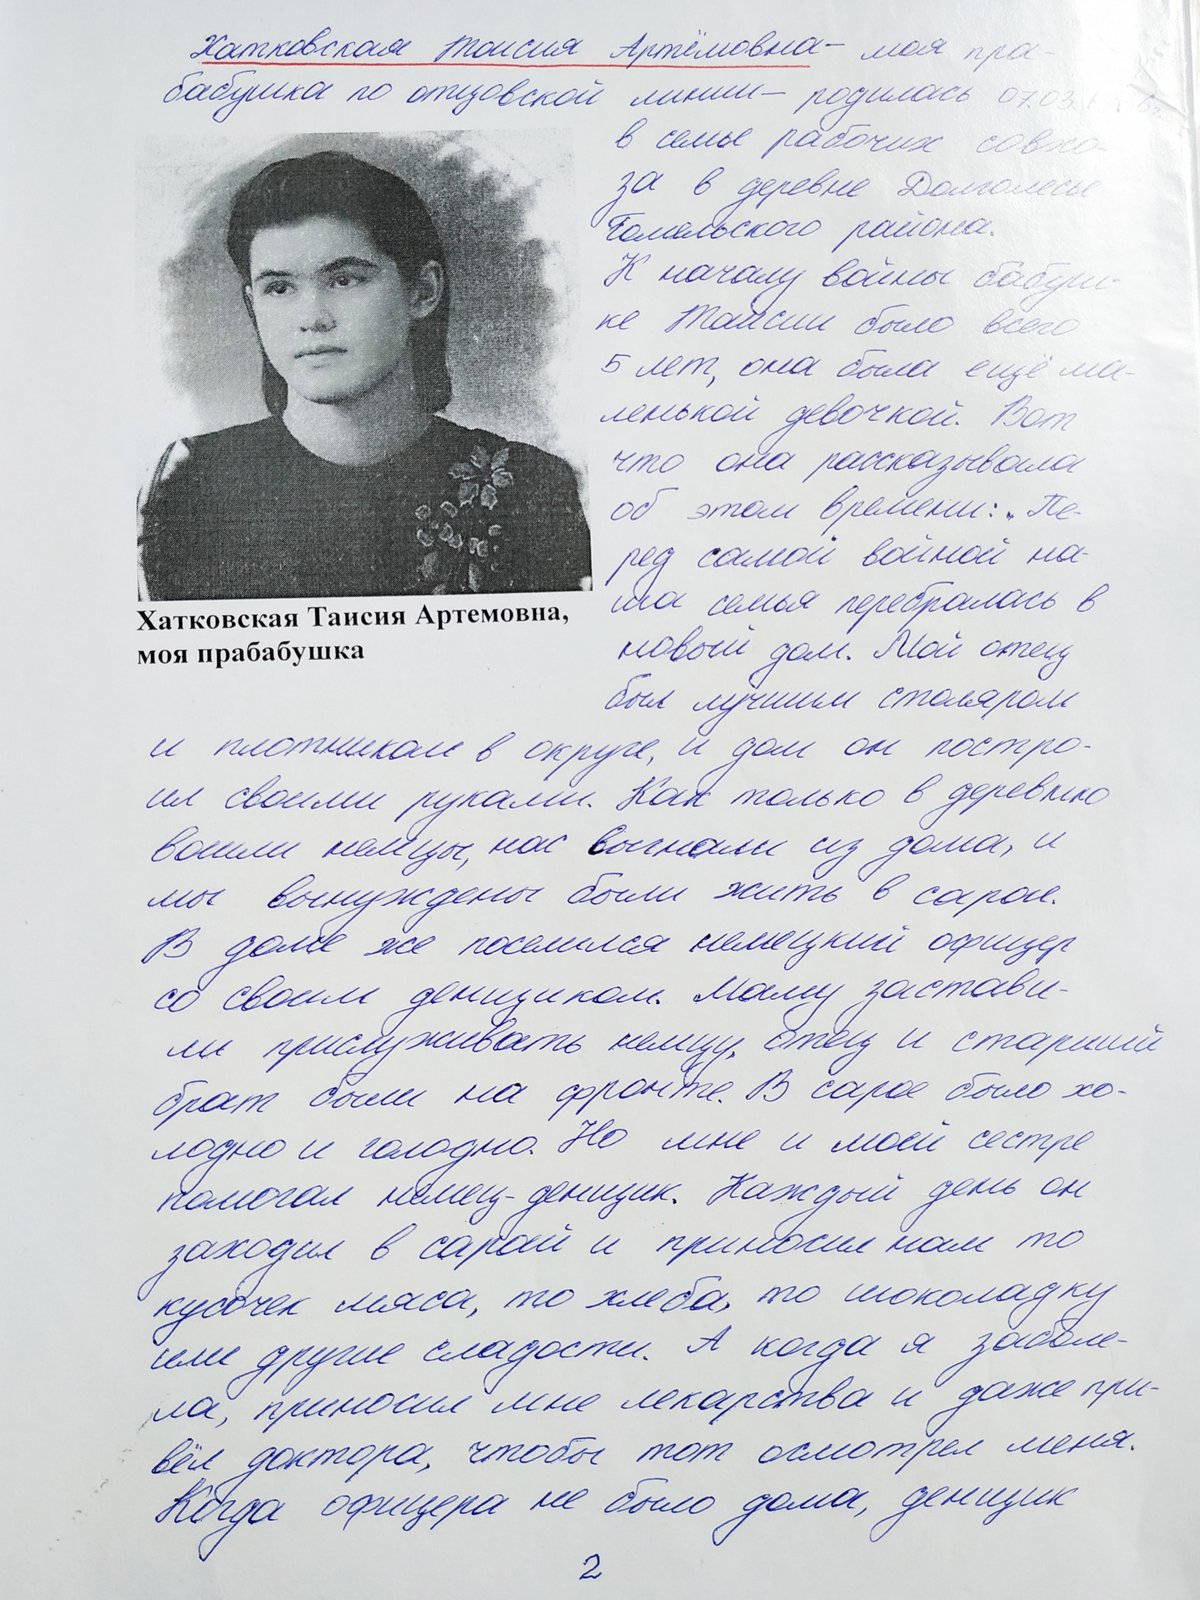 Хатковская Таисия Артёмовна – моя пра-
бабушка по отцовской линии – родилась 07.03.
в семье рабочих совхо-
за в деревне Долголесье
Гомельского района.
К началу войны бабуш-
ке Таисии было всего
5 лет, она была ещё ма-
ленькой девочкой. Вот
что она рассказывала
об этом времени: „Пе-
ред самой войной на-
ша семья перебралась в
новый дом. Мой отец
был лучшим столяром
Хатковская Таисия Артемовна,
моя прабабушка
и плотником в округе, и дом он постро-
ил своими руками. Как только в деревню
вошли немцы, нас выгнали из дома, и
мы вынуждены были жить в сарае.
В доме же поселился немецкий офицер
со своим денщиком. Маму застави-
ли прислуживать немцу, отец и старший
брат были на фронте. В сарае было хо-
лодно и голодно. Но мне и моей сестре
помогал немец-денщик. Каждый день он
заходил в сарай и приносил нам то
кусочек мяса, то хлеба, то шоколадку
или другие сладости. А когда я заболе-
ла, приносил мне лекарства и даже при-
вёл доктора, чтобы тот осмотрел меня.
Когда офицера не было дома, денщик
2